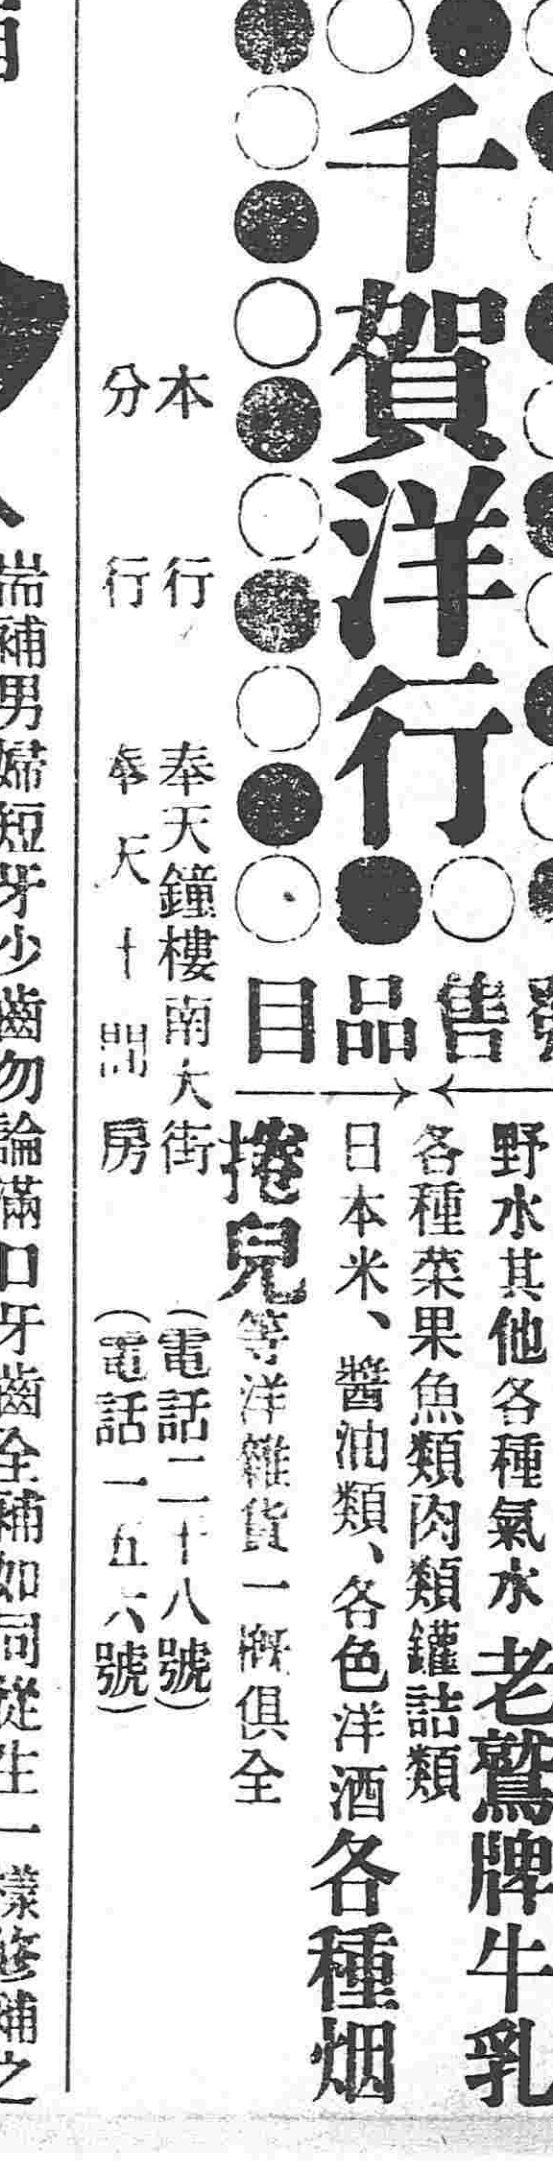 千賀洋行
發售品目
野水其他各種氣水老鷲牌牛乳
各種菜果魚類肉類罐詰類
日本米、醬油類、各色洋酒各種烟
捲兒等洋雜貨一概俱全
本行 奉天鐘樓南大街 (電話二十八號)
分行 奉天十間房 (電話一五六號)
補男婦短牙少齒勿論滿口牙齒全補如同從生一樣修補之